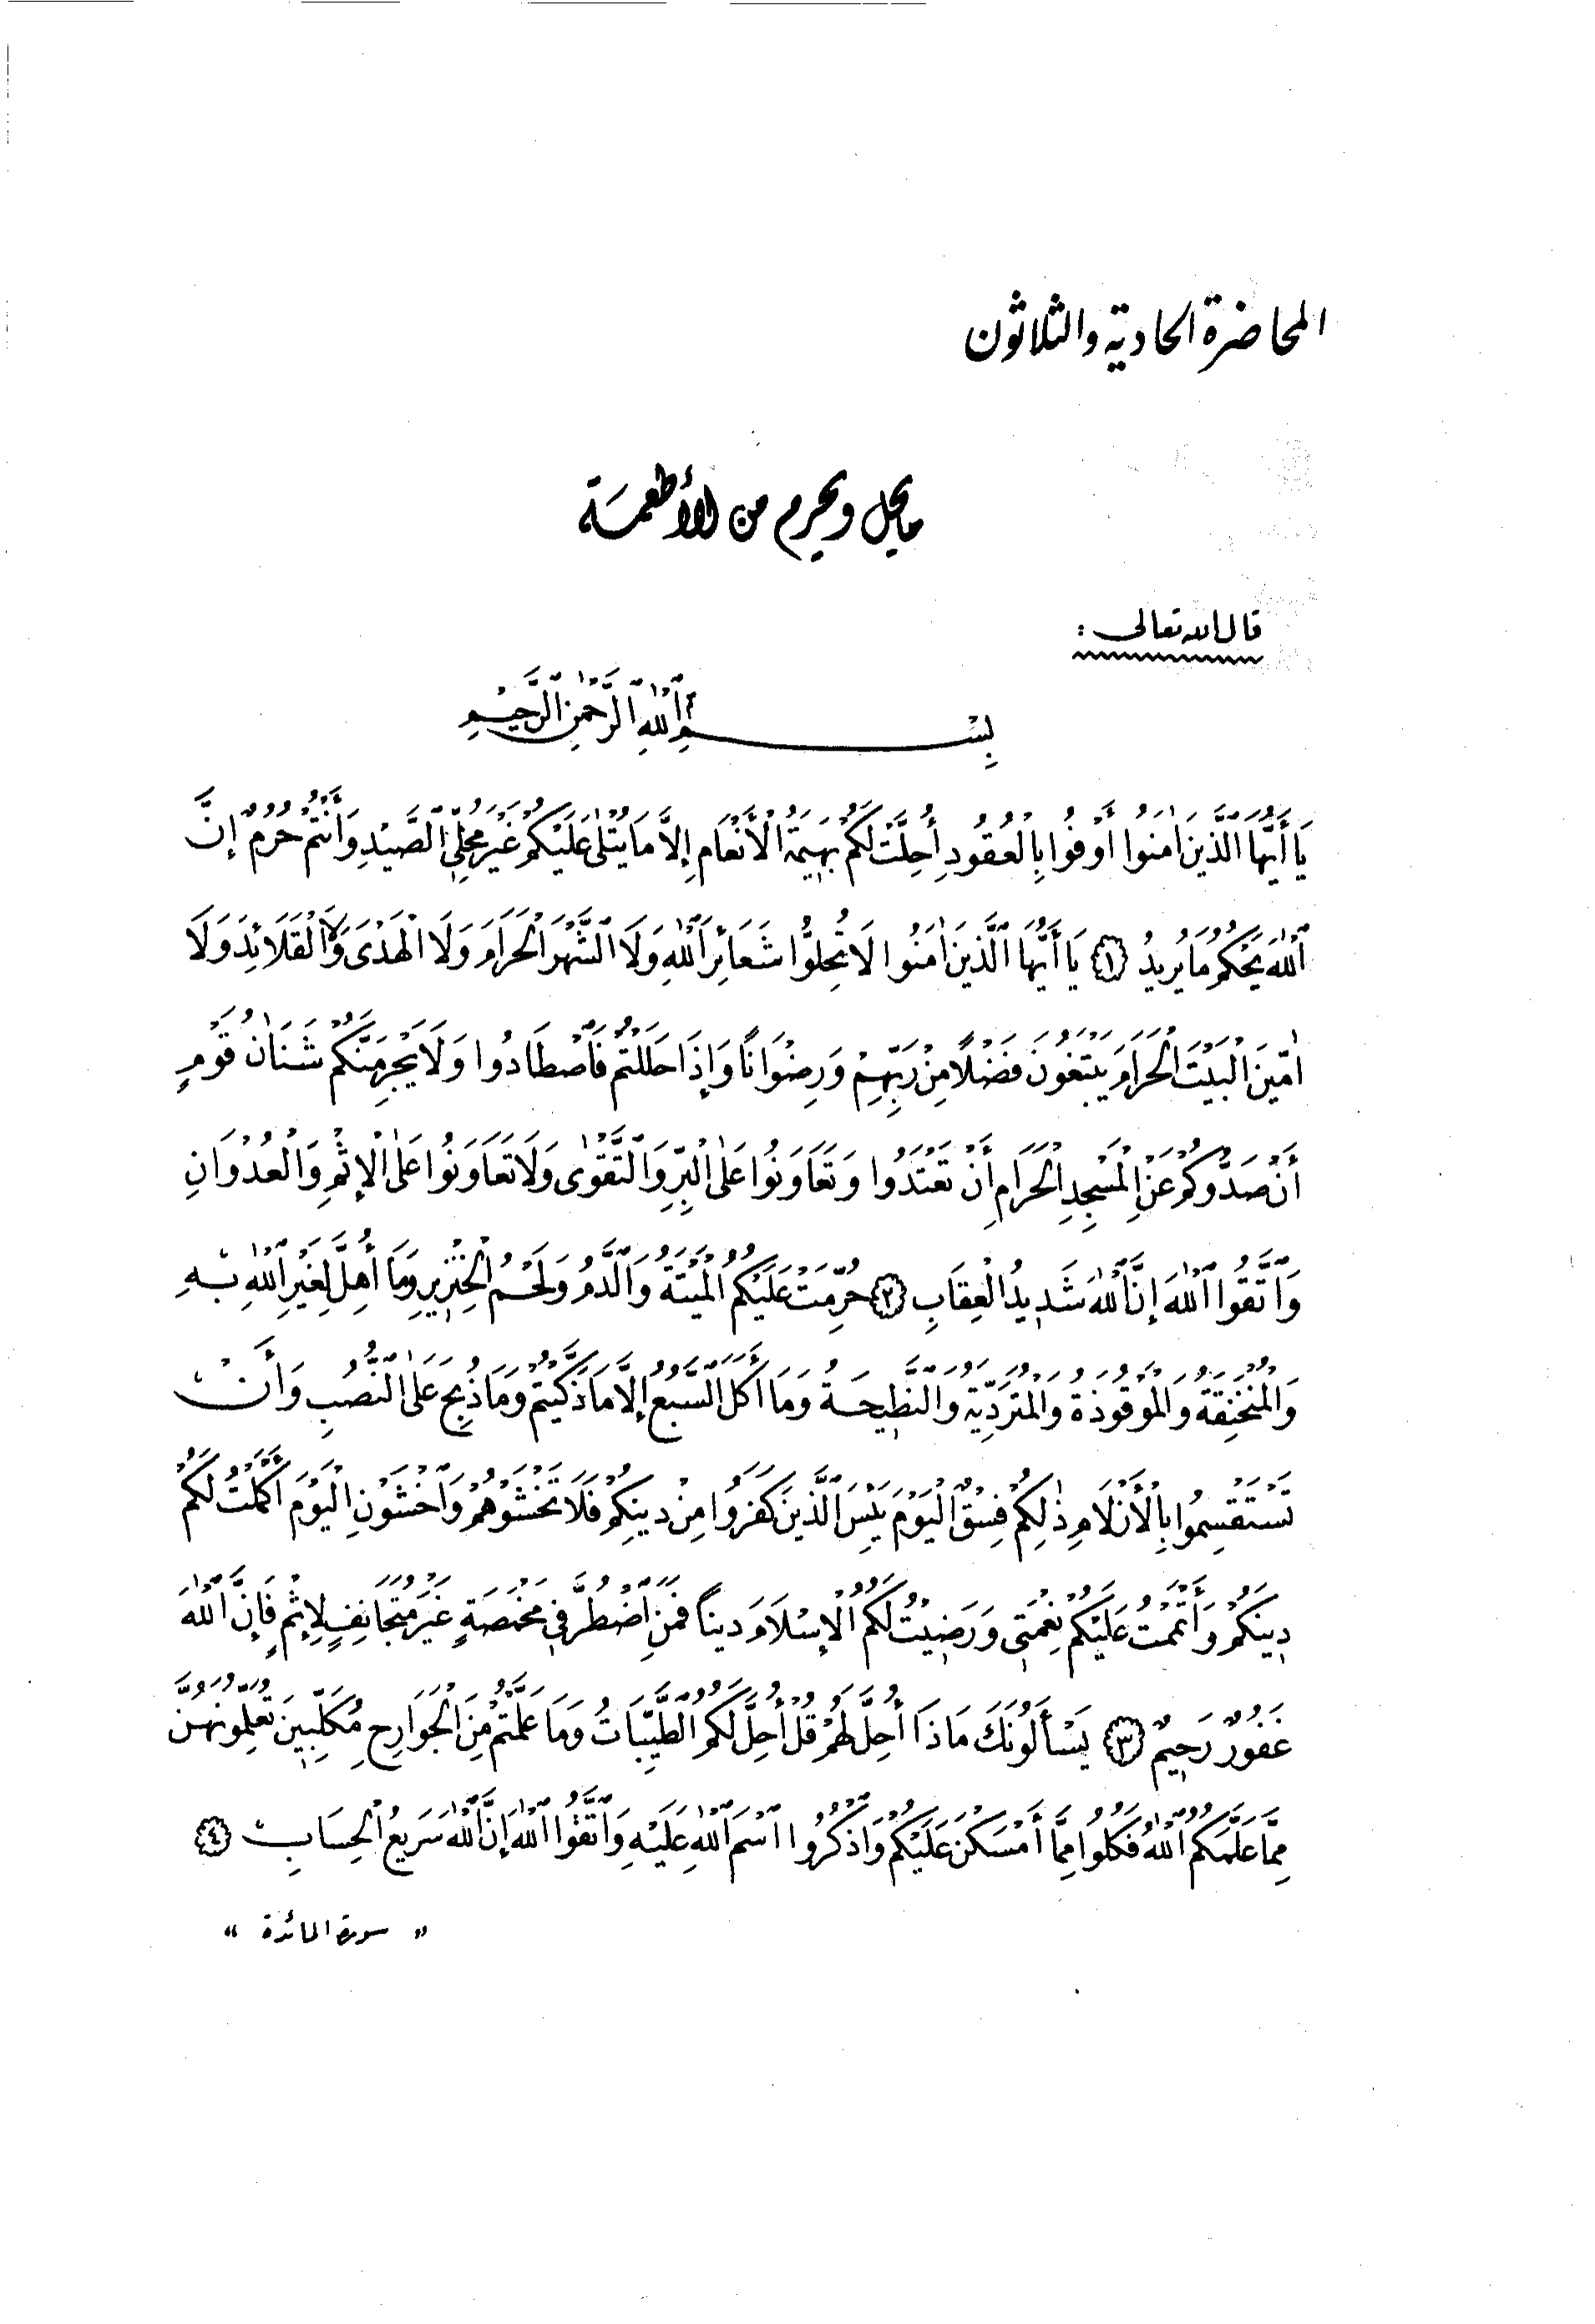 المحاضرة الحادية والثلاثون
ما يحل ويحرم من الأطعمة
قال الله تعالى :
بِسْمِ ٱللّٰهِ ٱلرَّحْمٰنِ ٱلرَّحِيمِ
يَا أَيُّهَا ٱلَّذِينَ اٰمَنُوا أَوْفُوا بِالْعُقُودِ أُحِلَّتْ لَكُمْ بَهِيمَةُ الْأَنْعَامِ إِلَّا مَا يُتْلٰى عَلَيْكُمْ غَيْرَ مُحِلِّي ٱلصَّيْدِ وَأَنْتُمْ حُرُمٌ إِنَّ
ٱللّٰهَ يَحْكُمُ مَا يُرِيدُ ﴿١﴾ يَا أَيُّهَا ٱلَّذِينَ اٰمَنُوا لَا تُحِلُّوا شَعَائِرَ ٱللّٰهِ وَلَا ٱلشَّهْرَ الْحَرَامَ وَلَا الْهَدْيَ وَلَا الْقَلَائِدَ وَلَا
اٰمِّينَ الْبَيْتَ الْحَرَامَ يَبْتَغُونَ فَضْلًا مِنْ رَبِّهِمْ وَرِضْوَانًا وَإِذَا حَلَلْتُمْ فَٱصْطَادُوا وَلَا يَجْرِمَنَّكُمْ شَنَاٰنُ قَوْمٍ
أَنْ صَدُّوكُمْ عَنِ الْمَسْجِدِ الْحَرَامِ أَنْ تَعْتَدُوا وَتَعَاوَنُوا عَلَى الْبِرِّ وَٱلتَّقْوٰى وَلَا تَعَاوَنُوا عَلَى الْإِثْمِ وَالْعُدْوَانِ
وَٱتَّقُوا ٱللّٰهَ إِنَّ ٱللّٰهَ شَدِيدُ الْعِقَابِ ﴿٢﴾ حُرِّمَتْ عَلَيْكُمُ الْمَيْتَةُ وَٱلدَّمُ وَلَحْمُ الْخِنْزِيرِ وَمَا أُهِلَّ لِغَيْرِ ٱللّٰهِ بِهِ
وَالْمُنْخَنِقَةُ وَالْمَوْقُوذَةُ وَالْمُتَرَدِّيَةُ وَٱلنَّطِيحَةُ وَمَا أَكَلَ ٱلسَّبُعُ إِلَّا مَا ذَكَّيْتُمْ وَمَا ذُبِحَ عَلَى ٱلنُّصُبِ وَأَنْ
تَسْتَقْسِمُوا بِالْأَزْلَامِ ذٰلِكُمْ فِسْقٌ الْيَوْمَ يَئِسَ ٱلَّذِينَ كَفَرُوا مِنْ دِينِكُمْ فَلَا تَخْشَوْهُمْ وَٱخْشَوْنِ الْيَوْمَ أَكْمَلْتُ لَكُمْ
دِينَكُمْ وَأَتْمَمْتُ عَلَيْكُمْ نِعْمَتِي وَرَضِيتُ لَكُمُ الْإِسْلَامَ دِينًا فَمَنِ ٱضْطُرَّ فِي مَخْمَصَةٍ غَيْرَ مُتَجَانِفٍ لِإِثْمٍ فَإِنَّ ٱللّٰهَ
غَفُورٌ رَحِيمٌ ﴿٣﴾ يَسْأَلُونَكَ مَاذَا أُحِلَّ لَهُمْ قُلْ أُحِلَّ لَكُمُ ٱلطَّيِّبَاتُ وَمَا عَلَّمْتُمْ مِنَ الْجَوَارِحِ مُكَلِّبِينَ تُعَلِّمُونَهُنَّ
مِمَّا عَلَّمَكُمُ ٱللّٰهُ فَكُلُوا مِمَّا أَمْسَكْنَ عَلَيْكُمْ وَٱذْكُرُوا ٱسْمَ ٱللّٰهِ عَلَيْهِ وَٱتَّقُوا ٱللّٰهَ إِنَّ ٱللّٰهَ سَرِيعُ الْحِسَابِ ﴿٤﴾
« سورة المائدة »